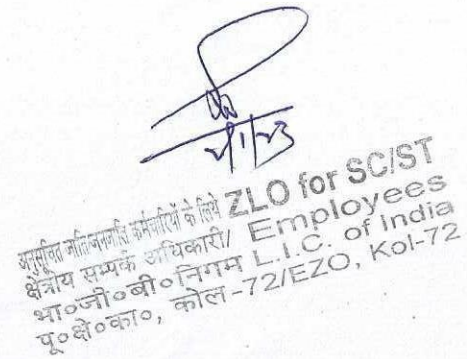 अनुसूचित जाति/जनजाति कर्मचारियों के लिये ZLO for SC/ST
क्षेत्रीय सम्पर्क अधिकारी/ Employees
भा०जी०बी०निगम L.I.C. of India
पू०क्षे०का०, कोल-72/EZO, Kol-72